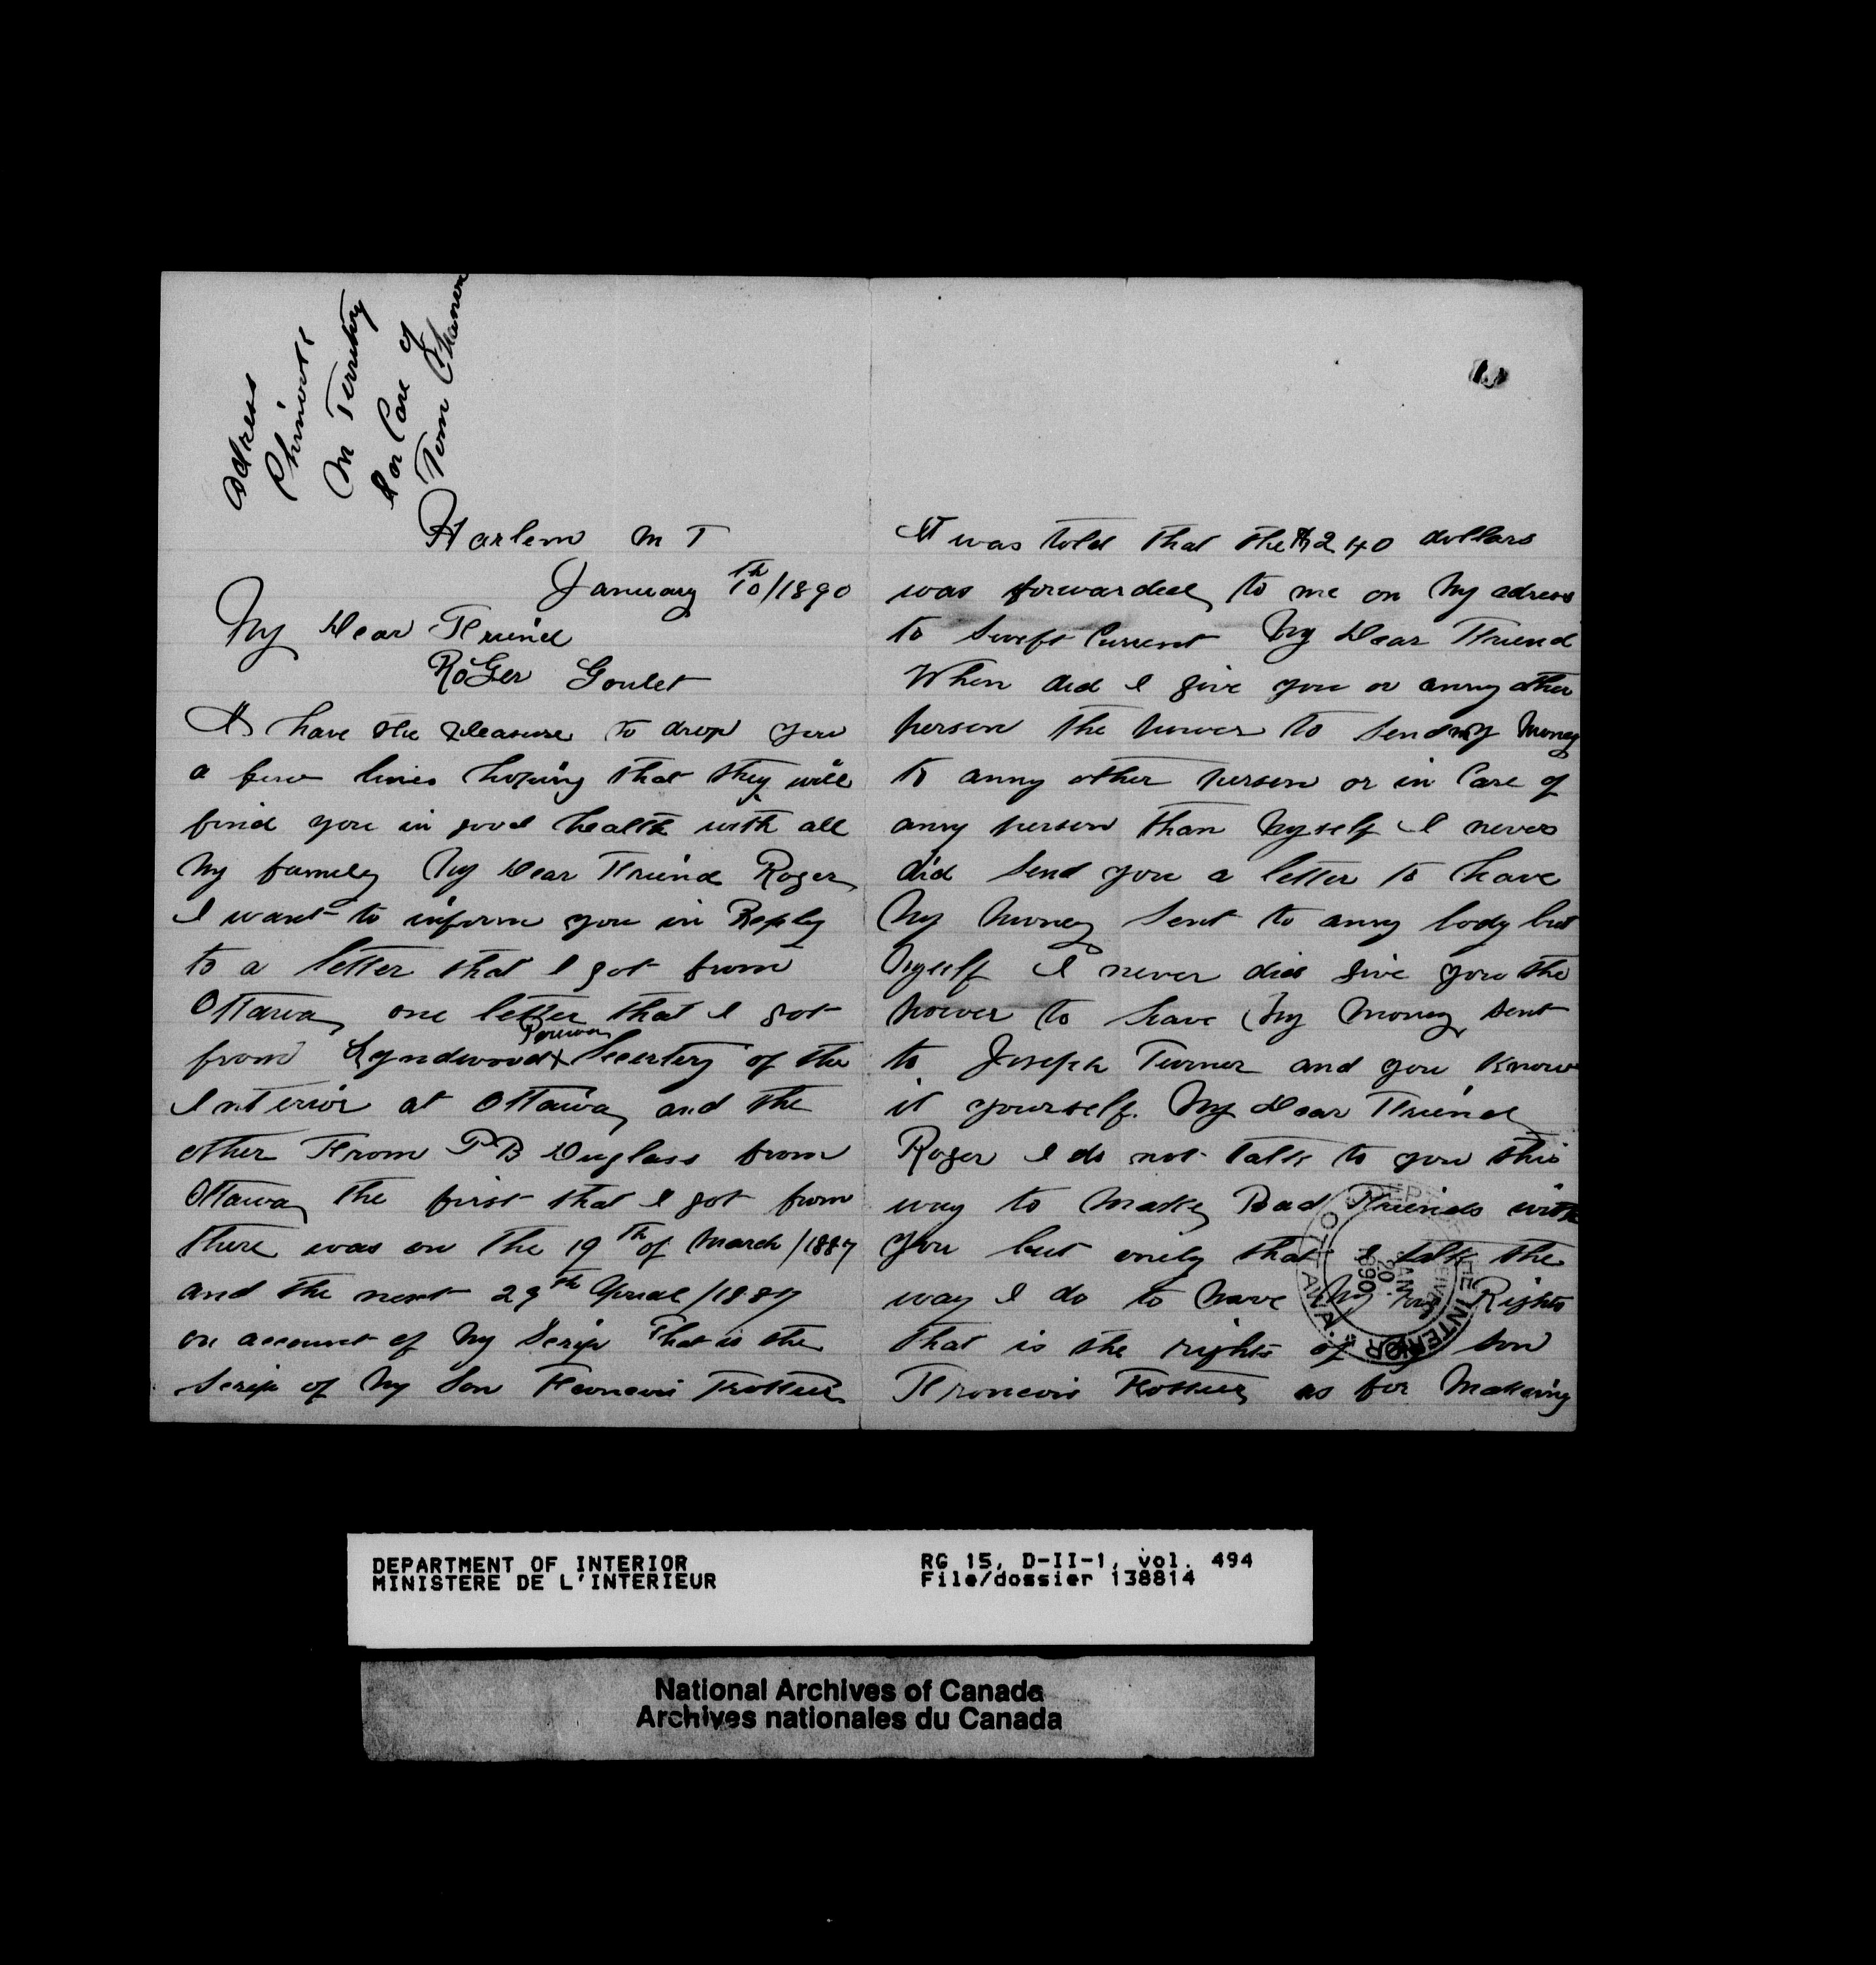 Adress
Chinook
M Territory
for Care of
Tom
Harlem M T
January 10th/1890
My Dear Friend
RoGer Goulet
I have the pleasure to drop you
a few lines hoping that they will
find you in good health with all
My family My Dear Friend Roger
I want to inform you in Reply
to a letter that I got from
Ottawa one letter that I got
from Lyndwood Pereira Secertery of the
Interior at Ottawa and the
other From P B Duglass from
Ottawa the first that I got from
there was on the 19th of March/1887
and the next 29th /1887
on account of My Scrip That is the
Scrip of My Son Francois Trottier
It was told that the $240 dollars
was forwarded to me on My adress
to Swift Current My Dear Friend
When did I give you or anny other
person the power to send my Money
to anny other person or in Care of
anny person than Myself I never
did Send you a letter to have
My Money Sent to anny body but
Myself I never did give you the
power to have My Money sent
to Joseph Turner and you Know
it yourself. My Dear Friend
Roger I do not talk to you this
way to Make Bad Friends with
you but onely that I talk the
way I do to have My Rights
that is the rights of My Son
Francois Trottier as for Makeing
DEPT OF THE INTERIOR
OTTAWA.
JAN
20
1890
DEPARTMENT OF INTERIOR
MINISTERE DE L'INTERIEUR
RG 15, D-II-1, vol. 494
File/dossier 138814
National Archives of Canada
Archives nationales du Canada